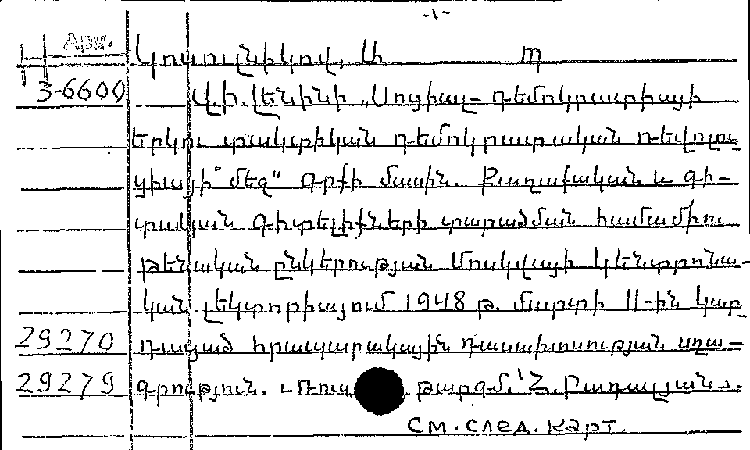 -1-
Արտ.
Կոստոլնիկով, Ա
3-6600 Վ. Ի. Լենինի „Սոցիալ-դեմոկրատիայի
երկու տակտիկան դեմոկրատական ռեվոլյու
ցիայի մեջ" գրքի մասին. Քաղաքական և գի-
տական գիտելիքների տարածման համամիու
թենական ընկերության Մոսկվայի կենտրոնա-
կան լեկտորիայում 1948 թ. մարտի 11-ին կար
29270 դացած հրապարակային դասախոսության սղա-
29279 գրություն. Ռուս թարգմ.՝ Հ. Բադալյան.
См. след. карт.